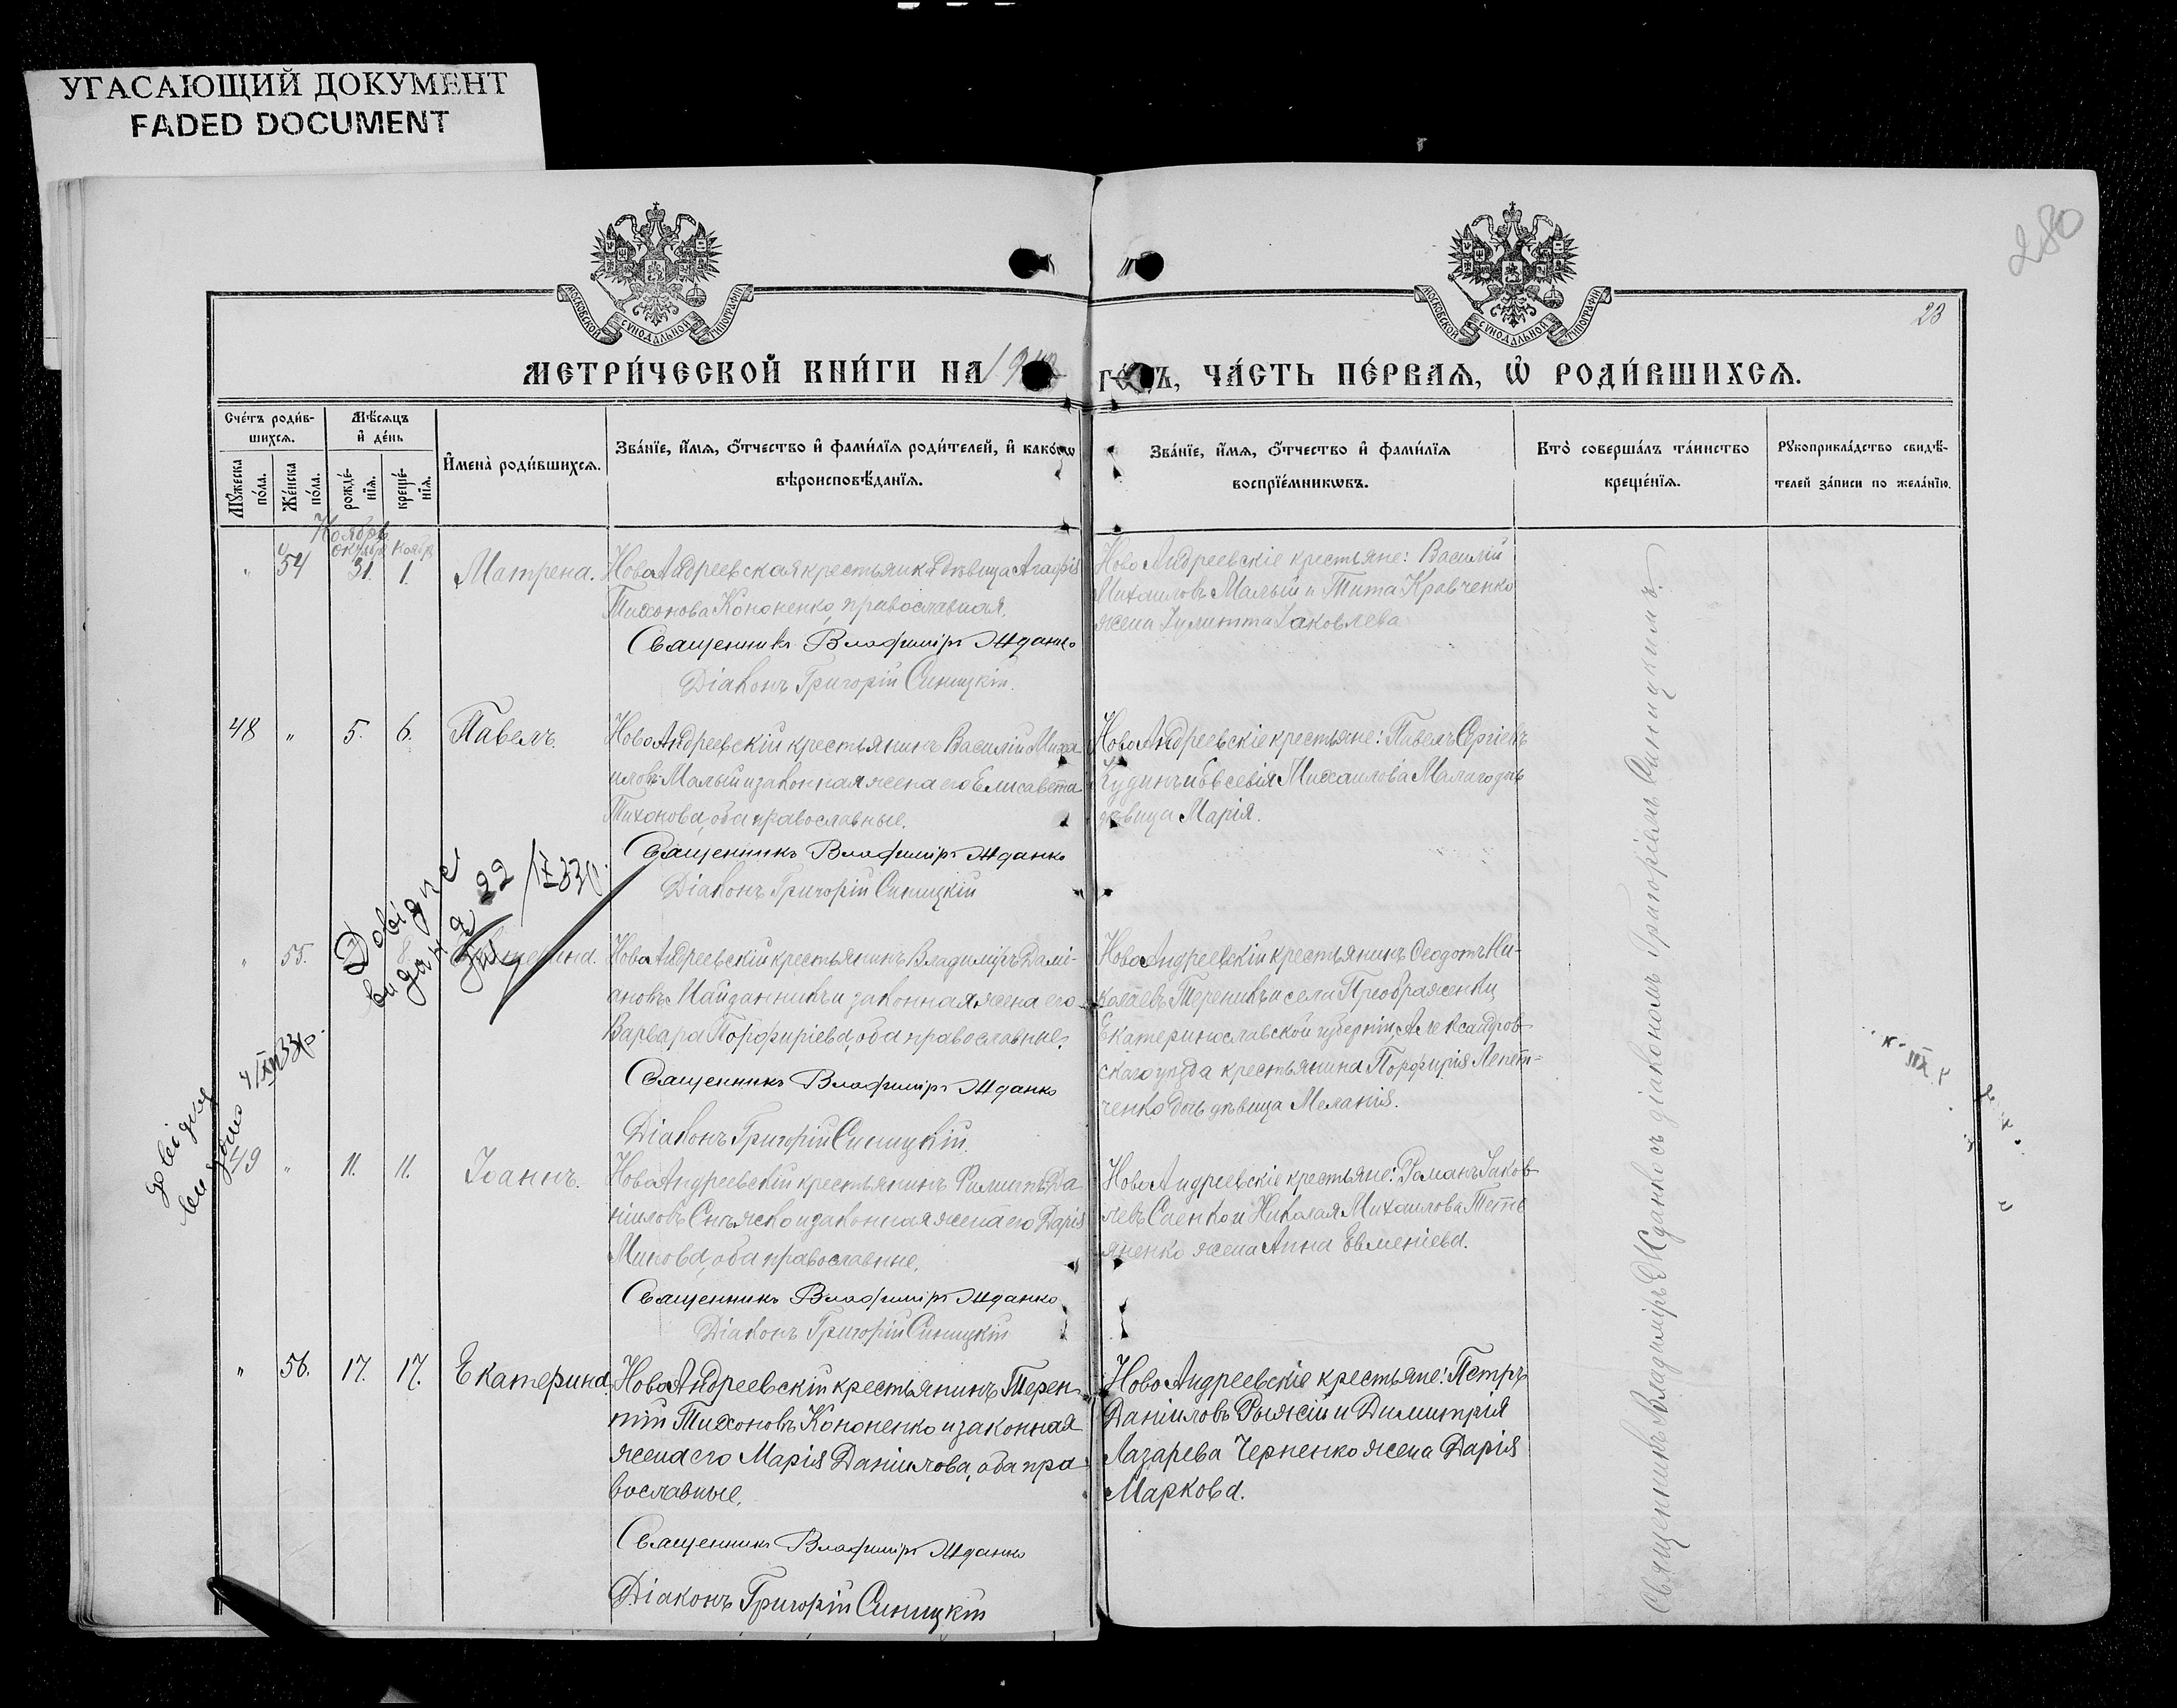 УГАСАЮЩИЙ ДОКУМЕНТ
FADED DOCUMENT
280
23
МОСКОВСКОЙ СѴНОДАЛЬНОЙ ТИПОГРАФІИ
МОСКОВСКОЙ СѴНОДАЛЬНОЙ ТИПОГРАФІИ
МЕТРИ́ЧЕСКОЙ КНИ́ГИ НА 19
ЧА́СТЬ ПЕ́РВАЯ, Ѽ РОДИ́ВШИХСЯ.
Сче́тъ роди́в-
шихся.
Мѣ́сяцъ
и҆ де́нь
Мꙋ́жеска по́ла.
Же́нска по́ла.
рожде́-нїѧ.
креще́-нїѧ.
И҆мена̀ роди́вшихся.
Зва́нїе, и҆́мя, ѻ҆́тчество и҆ фами́лїя роди́телей, и҆ како́гѡ
вѣроисповѣ́данїя.
Зва́нїе, и҆́мя, ѻ҆́тчество и҆ фами́лїя
воспрїе́мникѡвъ.
Кто̀ соверша́лъ та́инство
креще́нїя.
Рꙋкоприкла́дство свидѣ́-
телей за́писи по жела́нїю.
Ноябрь
октябр. Ноябр.
" 54 31. 1. Матрена.
НовоАндреевская крестьянка дѣвица Агафія
Тихонова Кононенко, православная.
Священникъ Владиміръ Жданко
Діаконъ Григорій Синицкій.
Ново Андреевскіе крестьяне: Василій
Михаиловъ Малый и Тита Кравченко
жена Іулитта Іаковлева
48 " 5. 6. Павелъ.
НовоАндреевскій крестьянинъ Василій Миха
иловъ Малый и законная жена его Елисавета
Тихонова, оба православные.
Священникъ Владиміръ Жданко
Діаконъ Григорій Синицкій
НовоАндреевскіе крестьяне: Павелъ Сергіевъ
Кудинъ и Евсевія Михаилова Малаго дочь
дѣвица Марія.
Довідка
видана 22/
" 55. 8. Екатерина.
НовоАндреевскій крестьянинъ Владиміръ Дамі-
ановъ Найданникъ и законная жена его
Варвара Порфиріева, оба православные.
Священникъ Владиміръ Жданко
Діаконъ Григорій Синицкій.
НовоАндреевскій крестьянинъ Ѳеодотъ Ни-
колаевъ Тереникъ и села Преображенки
Екатеринославской губерніи, Александров-
скаго уѣзда крестьянина Порфирія Лепет-
ченко дочь дѣвица Меланія.
довідку
видано 4/XII 33р.
49 " 11. 11. Іоаннъ.
НовоАндреевскій крестьянинъ Филиппъ Да
ніиловъ и законная жена его Дарія
оба православные.
Священникъ Владиміръ Жданко
Діаконъ Григорій Синицкій
НовоАндреевскіе крестьяне: Романъ Іаков-
левъ Саенко и Николая Михаилова Тетe
яненко жена Анна Евменіева.
" 56. 17. 17. Екатерина
НовоАндреевскій крестьянинъ Терен-
тій Тихоновъ Кононенко и законная
жена его Марія Даніилова, оба пра
вославные.
Священникъ Владиміръ Жданко
Діаконъ Григорій Синицкій
НовоАндреевскіе крестьяне: Петръ
Даніиловъ Рыжій и Димитрія
Лазарева Черненко жена Дарія
Маркова.
Священникъ Владиміръ Жданко съ діакономъ Григоріемъ Синицкимъ.